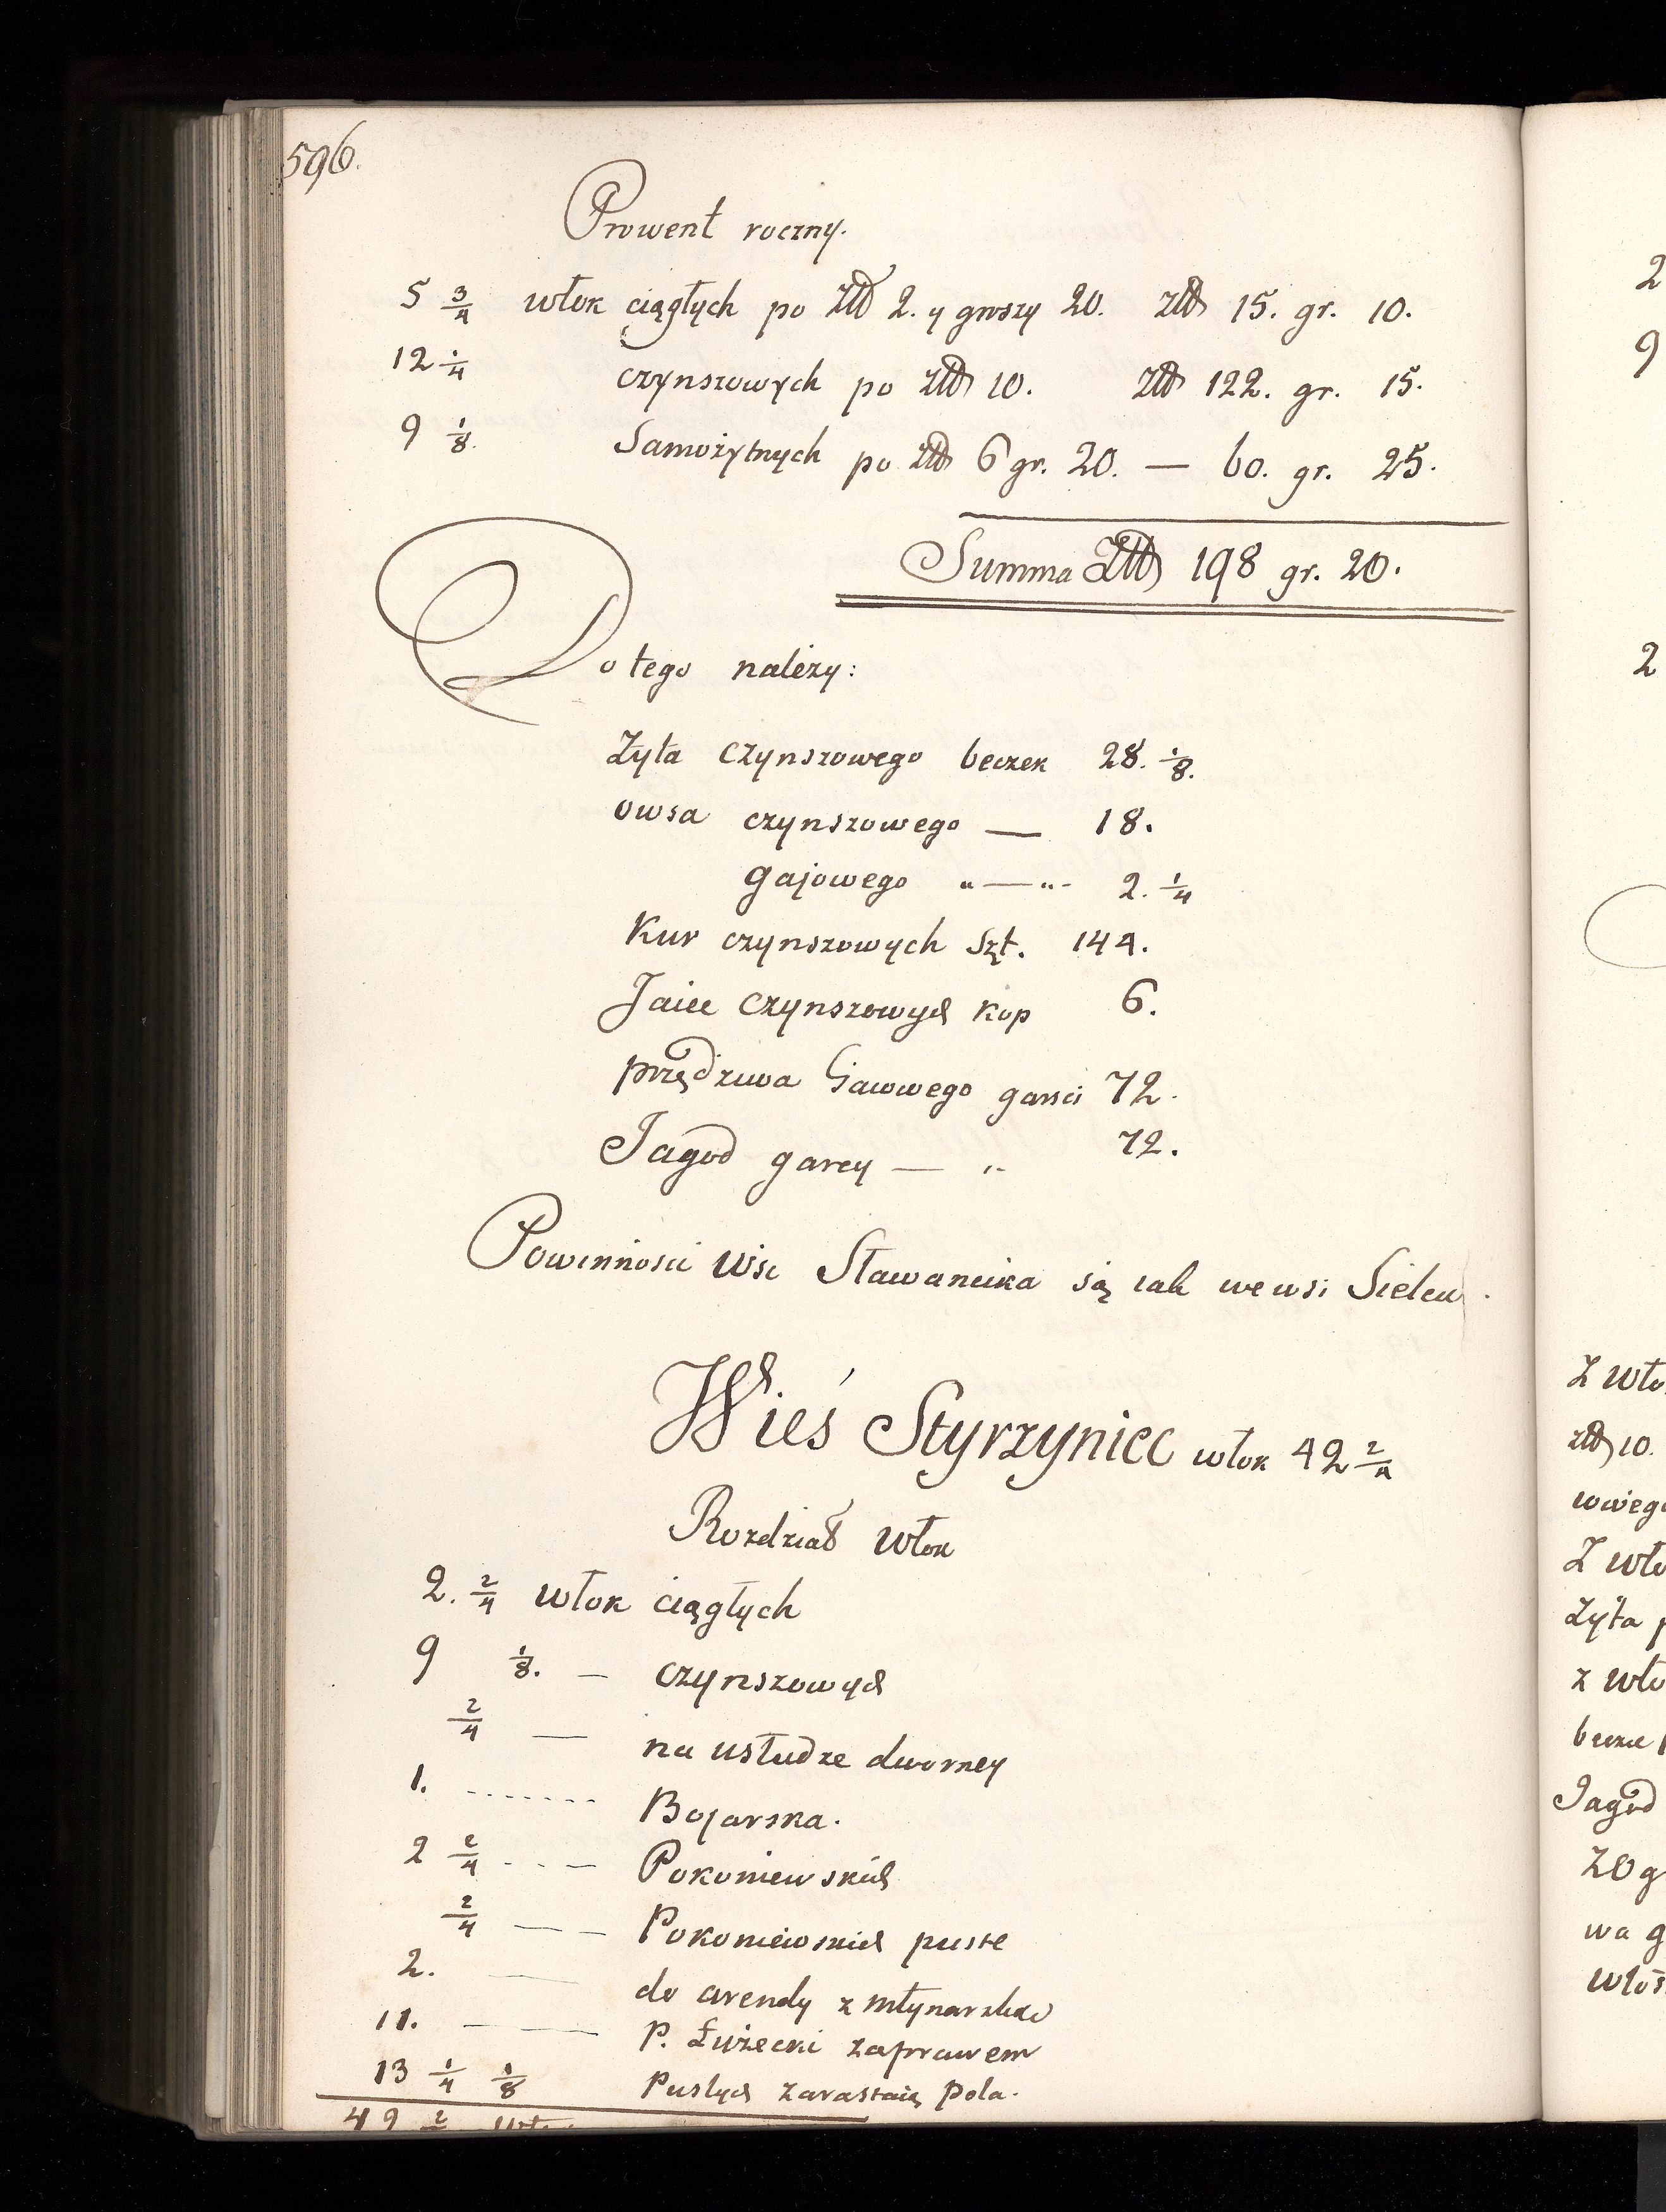 596.
Prowent roczny.
5 3/4 włok ciągłych po złł 2. y groszy 20. złł 15. gr. 10.
12 1/4 czynszowych po złł 10. złł 122. gr. 15.
9 1/8. Samożytnych po złł 6 gr. 20. — 60. gr. 25.
Summa Złł 198 gr. 20.
Do tego należy:
Żyta czynszowego beczek 28. 1/8.
owsa czynszowego — 18.
gajowego " — " - 2. 1/4
Kur czynszowych Szt. 144.
Jaiec czynszowych kop 6.
przędziwa Gaiowego garsci 72.
Jagod garcy — " 72.
Powinnosci Wsi Sławancika są iak we wsi Sielcu.
Wieś Styrzyniec włok 42 2/4
Rozdział włok
2. 2/4 włok ciągłych
9 1/8. — czynszowych
2/4 — na usłudze dworney
1. ....... Bojarska.
2 2/4 . . . — Pokoniewskich
2/4 — — Pokoniewskich puste
2. — do arendy z młynarzką
11. — P. Łużecki za prawem
13 1/4 1/8 Pustych zarastaią pola.
42 2/4 włok
2
9
2
Z wło
złł 10.
Z wło
Żyta p
z wło
Jagod
20 g
wa g
włos